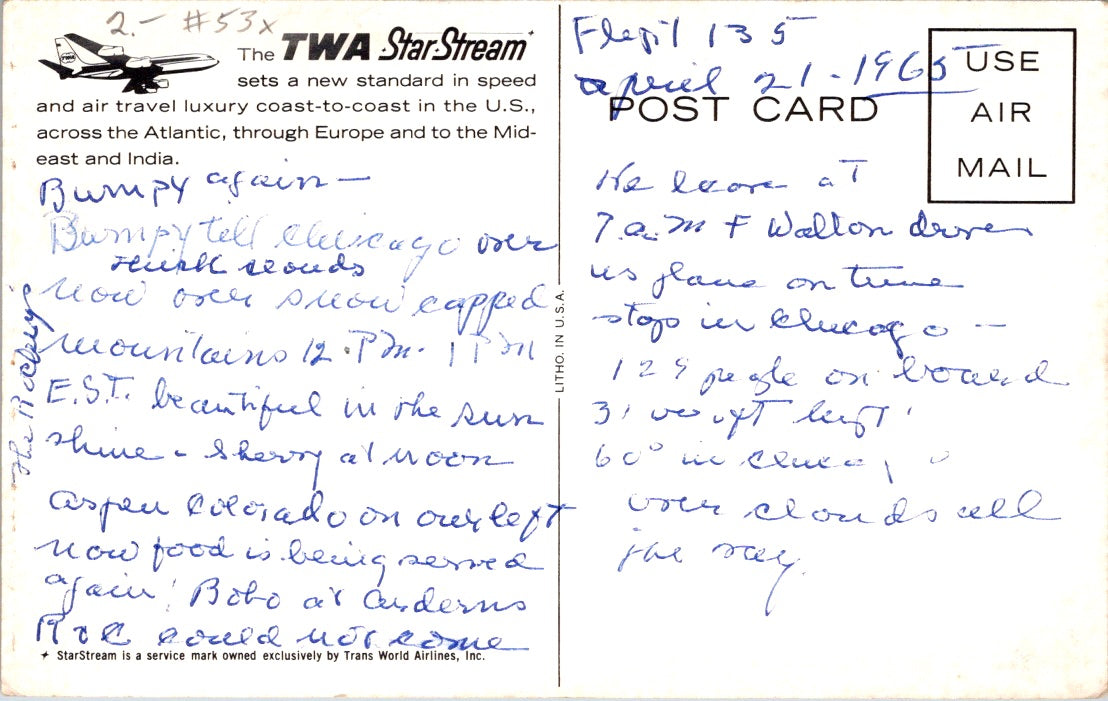 2.- #53x
The TWA StarStream✦
sets a new standard in speed
and air travel luxury coast-to-coast in the U.S.,
across the Atlantic, through Europe and to the Mid-
east and India.
Bumpy again —
Bumpy till Chicago over
thick clouds
now over snow capped
mountains 12 P.M. 1 PM
E.S.T. beautiful in the sun
shine - Sherry at noon
Aspen Colorado on our left
now food is being served
again! Bobo at
R & C could not come
The Rockys
✦ StarStream is a service mark owned exclusively by Trans World Airlines, Inc.
LITHO. IN U.S.A.
Flegit 135
april 21-1965
POST CARD
USE
AIR
MAIL
We leave at
7.a.m F Walton drove
us plane on time
stops in Chicago —
129 people on board
31
60° in Chicago
over clouds all
the way.